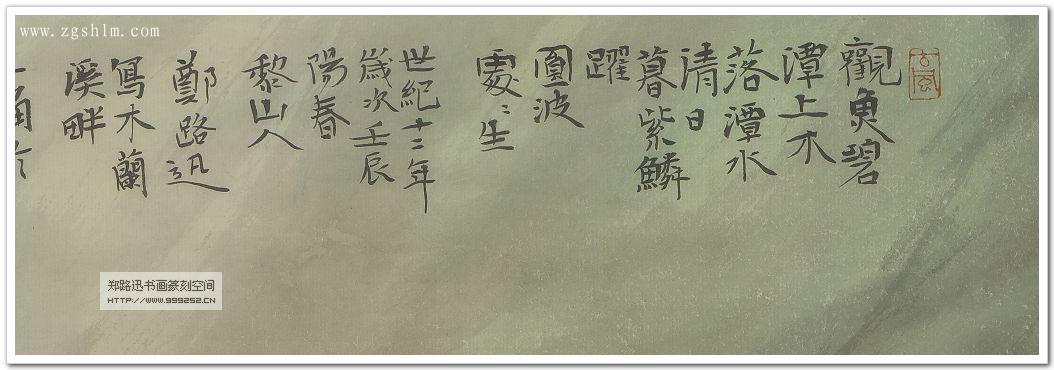 www.zgshlm.com
觀魚碧
潭上木
落潭水
清日
暮紫鱗
躍
圓波
處〻生
世紀十二年
歲次壬辰
陽春
黎山人
鄭路迅
寫木蘭
溪畔
郑路迅书画篆刻空间
HTTP://WWW.999252.CN